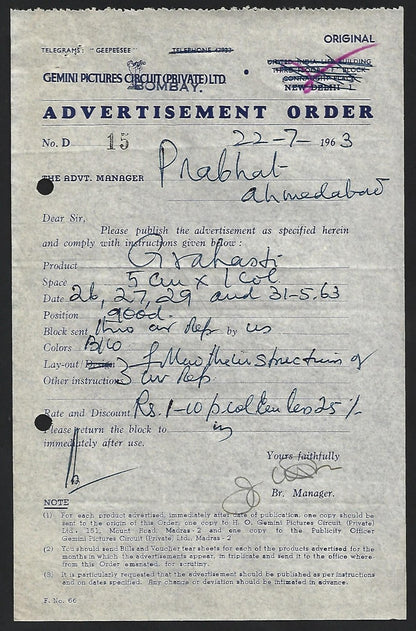 ORIGINAL
TELEGRAMS: "GEEPEESEE" TELEPHONE 42933
UNITED INDIA LIFE BUILDING
GEMINI PICTURES CIRCUIT (PRIVATE) LTD.
BOMBAY.
NEW DELHI 1.
ADVERTISEMENT ORDER
No. D 15 22-7-1963
Prabhat
THE ADVT. MANAGER
Ahmedabad
Dear Sir,
Please publish the advertisement as specified herein
and comply with instructions given below :
Product Grahasti
Space 5 cm x 1 col
Date 26, 27, 29 and 31-5.63
Position good.
Block sent thro our Rep by us
Colors B/W
Lay-out/ follow the instructions of
Other instructions our Rep
Rate and Discount Rs. 1-10 p. col cm less 25%
Please return the block to us
immediately after use.
Yours faithfully
Br. Manager.
NOTE
(1) For each product advertised, immediately after date of publication, one copy should be
sent to the origin of this Order, one copy to H. O. Gemini Pictures Circuit (Private)
Ltd., 151, Mount Road, Madras-2 and one copy to the Publicity Officer
Gemini Pictures Circuit (Private) Ltd., Madras-2
(2) You should send Bills and Voucher tear sheets for each of the products advertised for the
months in which the advertisements appear, in triplicate and send it to the office where-
from this Order emanated, for scrutiny.
(3) It is particularly requested that the advertisement should be published as per instructions
and on dates specified. Any change or deviation should be intimated in advance.
F. No. 66